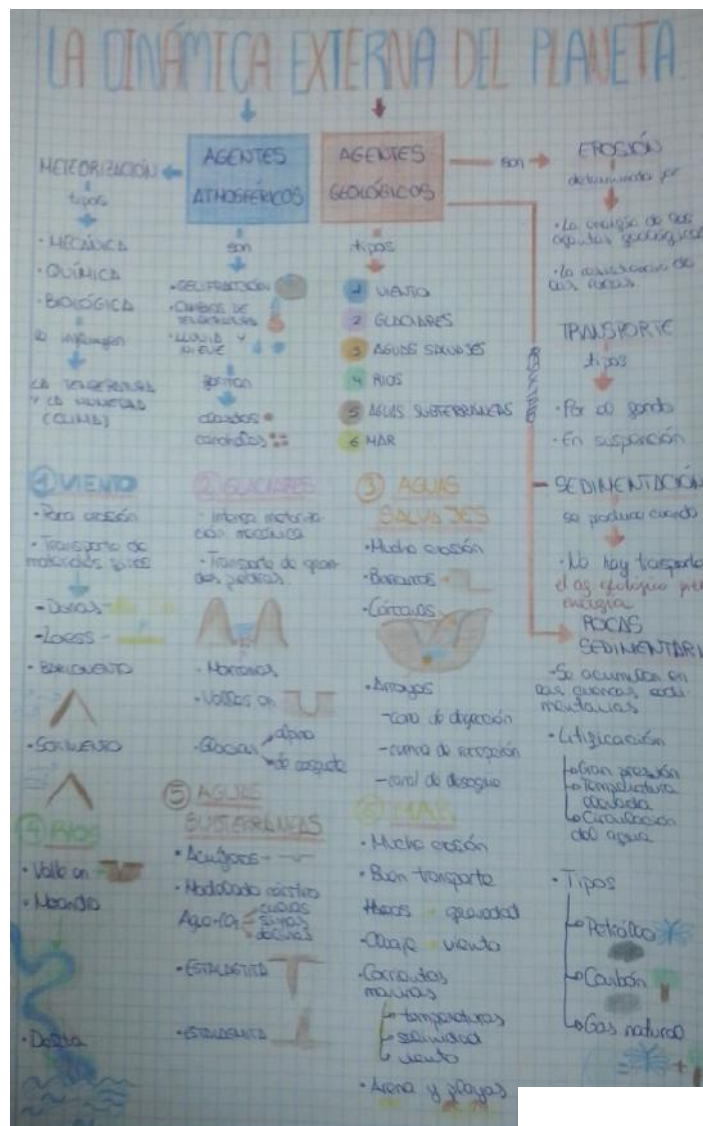 LA DINÁMICA EXTERNA DEL PLANETA
METEORIZACIÓN
tipos
· MECÁNICA
· QUÍMICA
· BIOLÓGICA
LA TEMPERATURA
Y LA HUMEDAD
(CLIMA)
AGENTES
ATMOSFÉRICOS
son
· GELIFRACCIÓN
· CAMBIOS DE
TEMPERATURA
· LLUVIA Y
NIEVE
forman
canchales
AGENTES
GEOLÓGICOS
tipos
1 VIENTO
2 GLACIARES
3 AGUAS SALVAJES
4 RIOS
5 AGUAS SUBTERRÁNEAS
6 MAR
son
EROSIÓN
determinada por
· La energía de los
agentes geológicos
· La resistencia de
las rocas.
TRANSPORTE
tipos
· Por el fondo
· En suspensión
SEDIMENTACIÓN
se produce cuando
· No hay transporte
el ag geológico
energía
ROCAS
SEDIMENTARI
- Se acumulan en
las cuencas sedi
mentarias
· Litificación
Gran presión
Temperatura
elevada
Circulación
del agua
· Tipos
Petróleo
Carbón
Gas natural
= +
1 VIENTO
· Poca erosión
· Transporte de
materiales
- Dunas -
- Loess -
· BARLOVENTO
· SOTAVENTO
2 GLACIARES
· Intensa meteoriza
ción mecánica
· Transporte de gran
des piedras
· Morrenas
· Valles en
· Glaciar
alpino
de casquete
3 AGUAS
SALVAJES
· Mucha erosión
· Barrancos -
· Cárcavas
· Arroyos
- cono de deyección
- cuenca de recepción
- canal de desagüe
4 RIOS
· Valle en -
· Meandro
· Delta
5 AGUAS
SUBTERRÁNEAS
· Acuíferos -
· Modelado cárstico
cuevas
simas
dolinas
· ESTALACTITA
· ESTALAGMITA
6 MAR
· Mucha erosión
· Buen transporte
gravedad
· Oleaje viento
· Corrientes
marinas
temperaturas
salinidad
viento
· Arena y playas